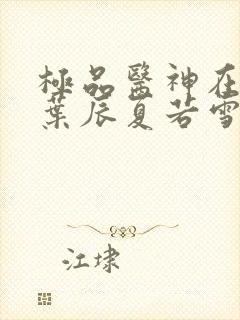 極品醫神在
葉辰夏若雪
江埭